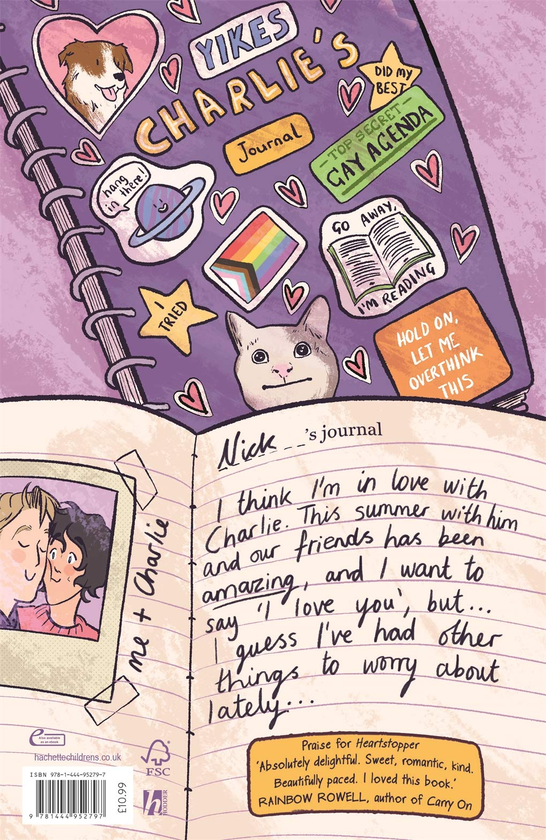 YIKES
CHARLIE'S
Journal
DID MY
BEST
-TOP SECRET-
GAY AGENDA
hang
in there!
GO AWAY,
I'M READING
I
TRIED
HOLD ON,
LET ME
OVERTHINK
THIS
Nick's journal
I think I'm in love with
Charlie. This summer with him
and our friends has been
amazing, and I want to
say 'I love you', but...
I guess I've had other
things to worry about
lately...
me + Charlie
Praise for Heartstopper
'Absolutely delightful. Sweet, romantic, kind.
Beautifully paced. I loved this book.'
RAINBOW ROWELL, author of Carry On
hachettechildrens.co.uk
ISBN 978-1-444-95279-7
9 781444 952797
£10.99
FSC
h
HODDER